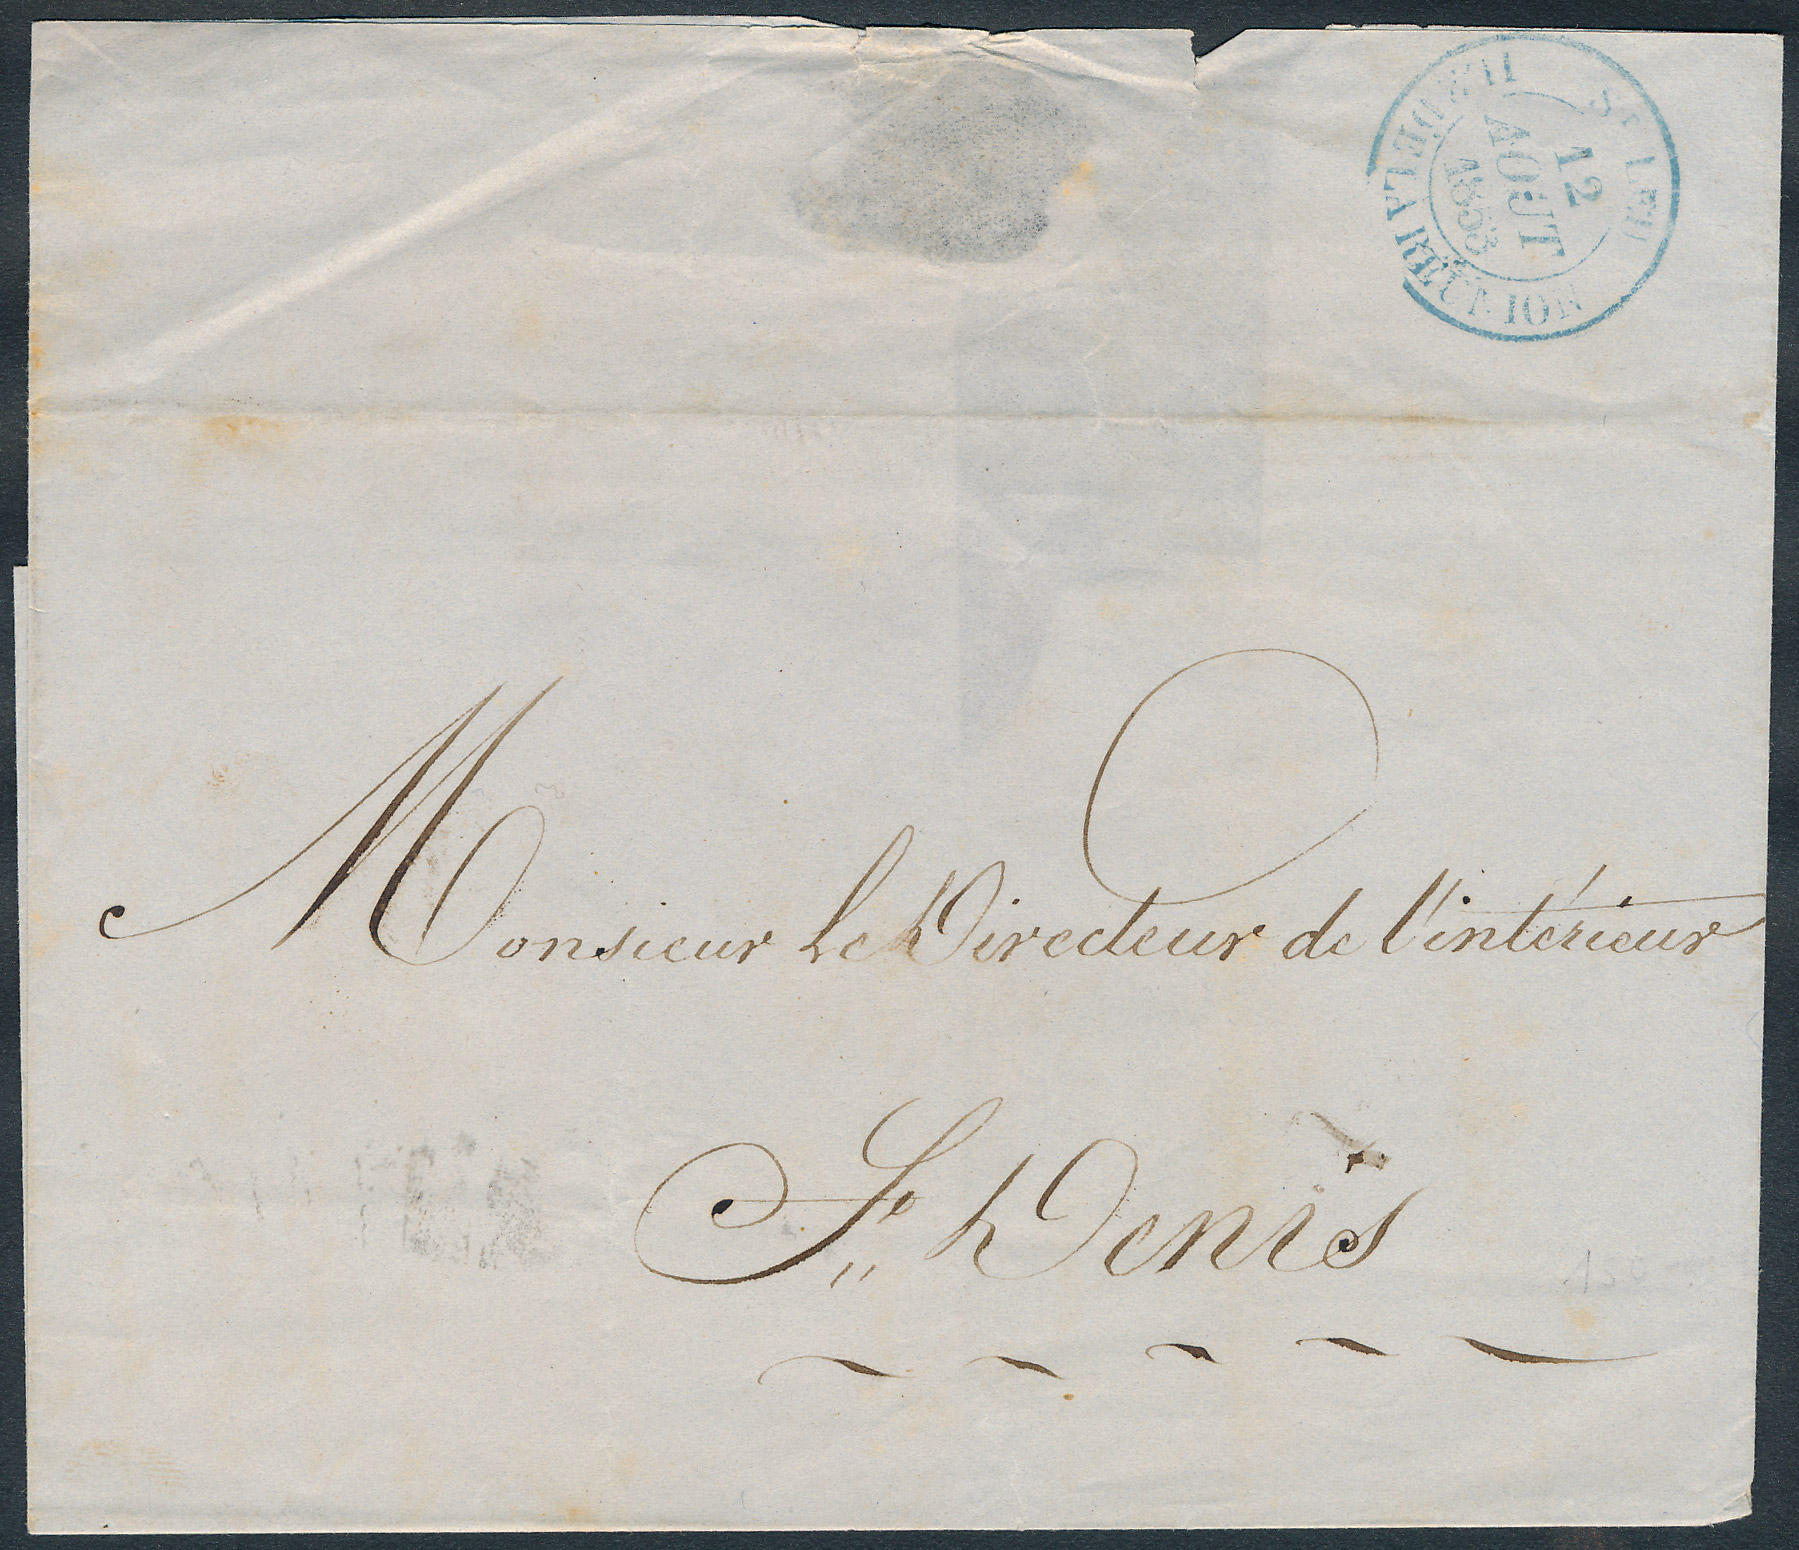 St LEU
12
AOUT
1853
ILE DE LA RÉUNION
Monsieur Le Directeur de l'intérieur
St Denis